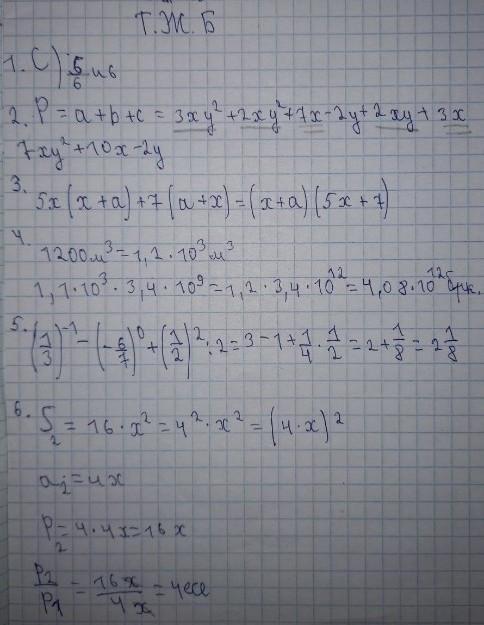 Т.Ж.Б
1. C) 5/6 и 6
2. P = a+b+c = 3xy²+2xy²+7x-2y+2xy+3x
7xy²+10x-2y
3. 5x(x+a)+7(a+x)=(x+a)(5x+7)
4. 1200м³=1,2·10³м³
1,1·10³·3,4·10⁹=1,2·3,4·10¹²=4,08·10¹²
5. (1/3)⁻¹-(-6/7)⁰+(1/2)²:2=3-1+1/4·1/2=2+1/8=2 1/8
6. S₂=16·x²=4²·x²=(4·x)²
a₂=4x
P₂=4·4x=16x
P₂/P₁=16x/4x=4есе